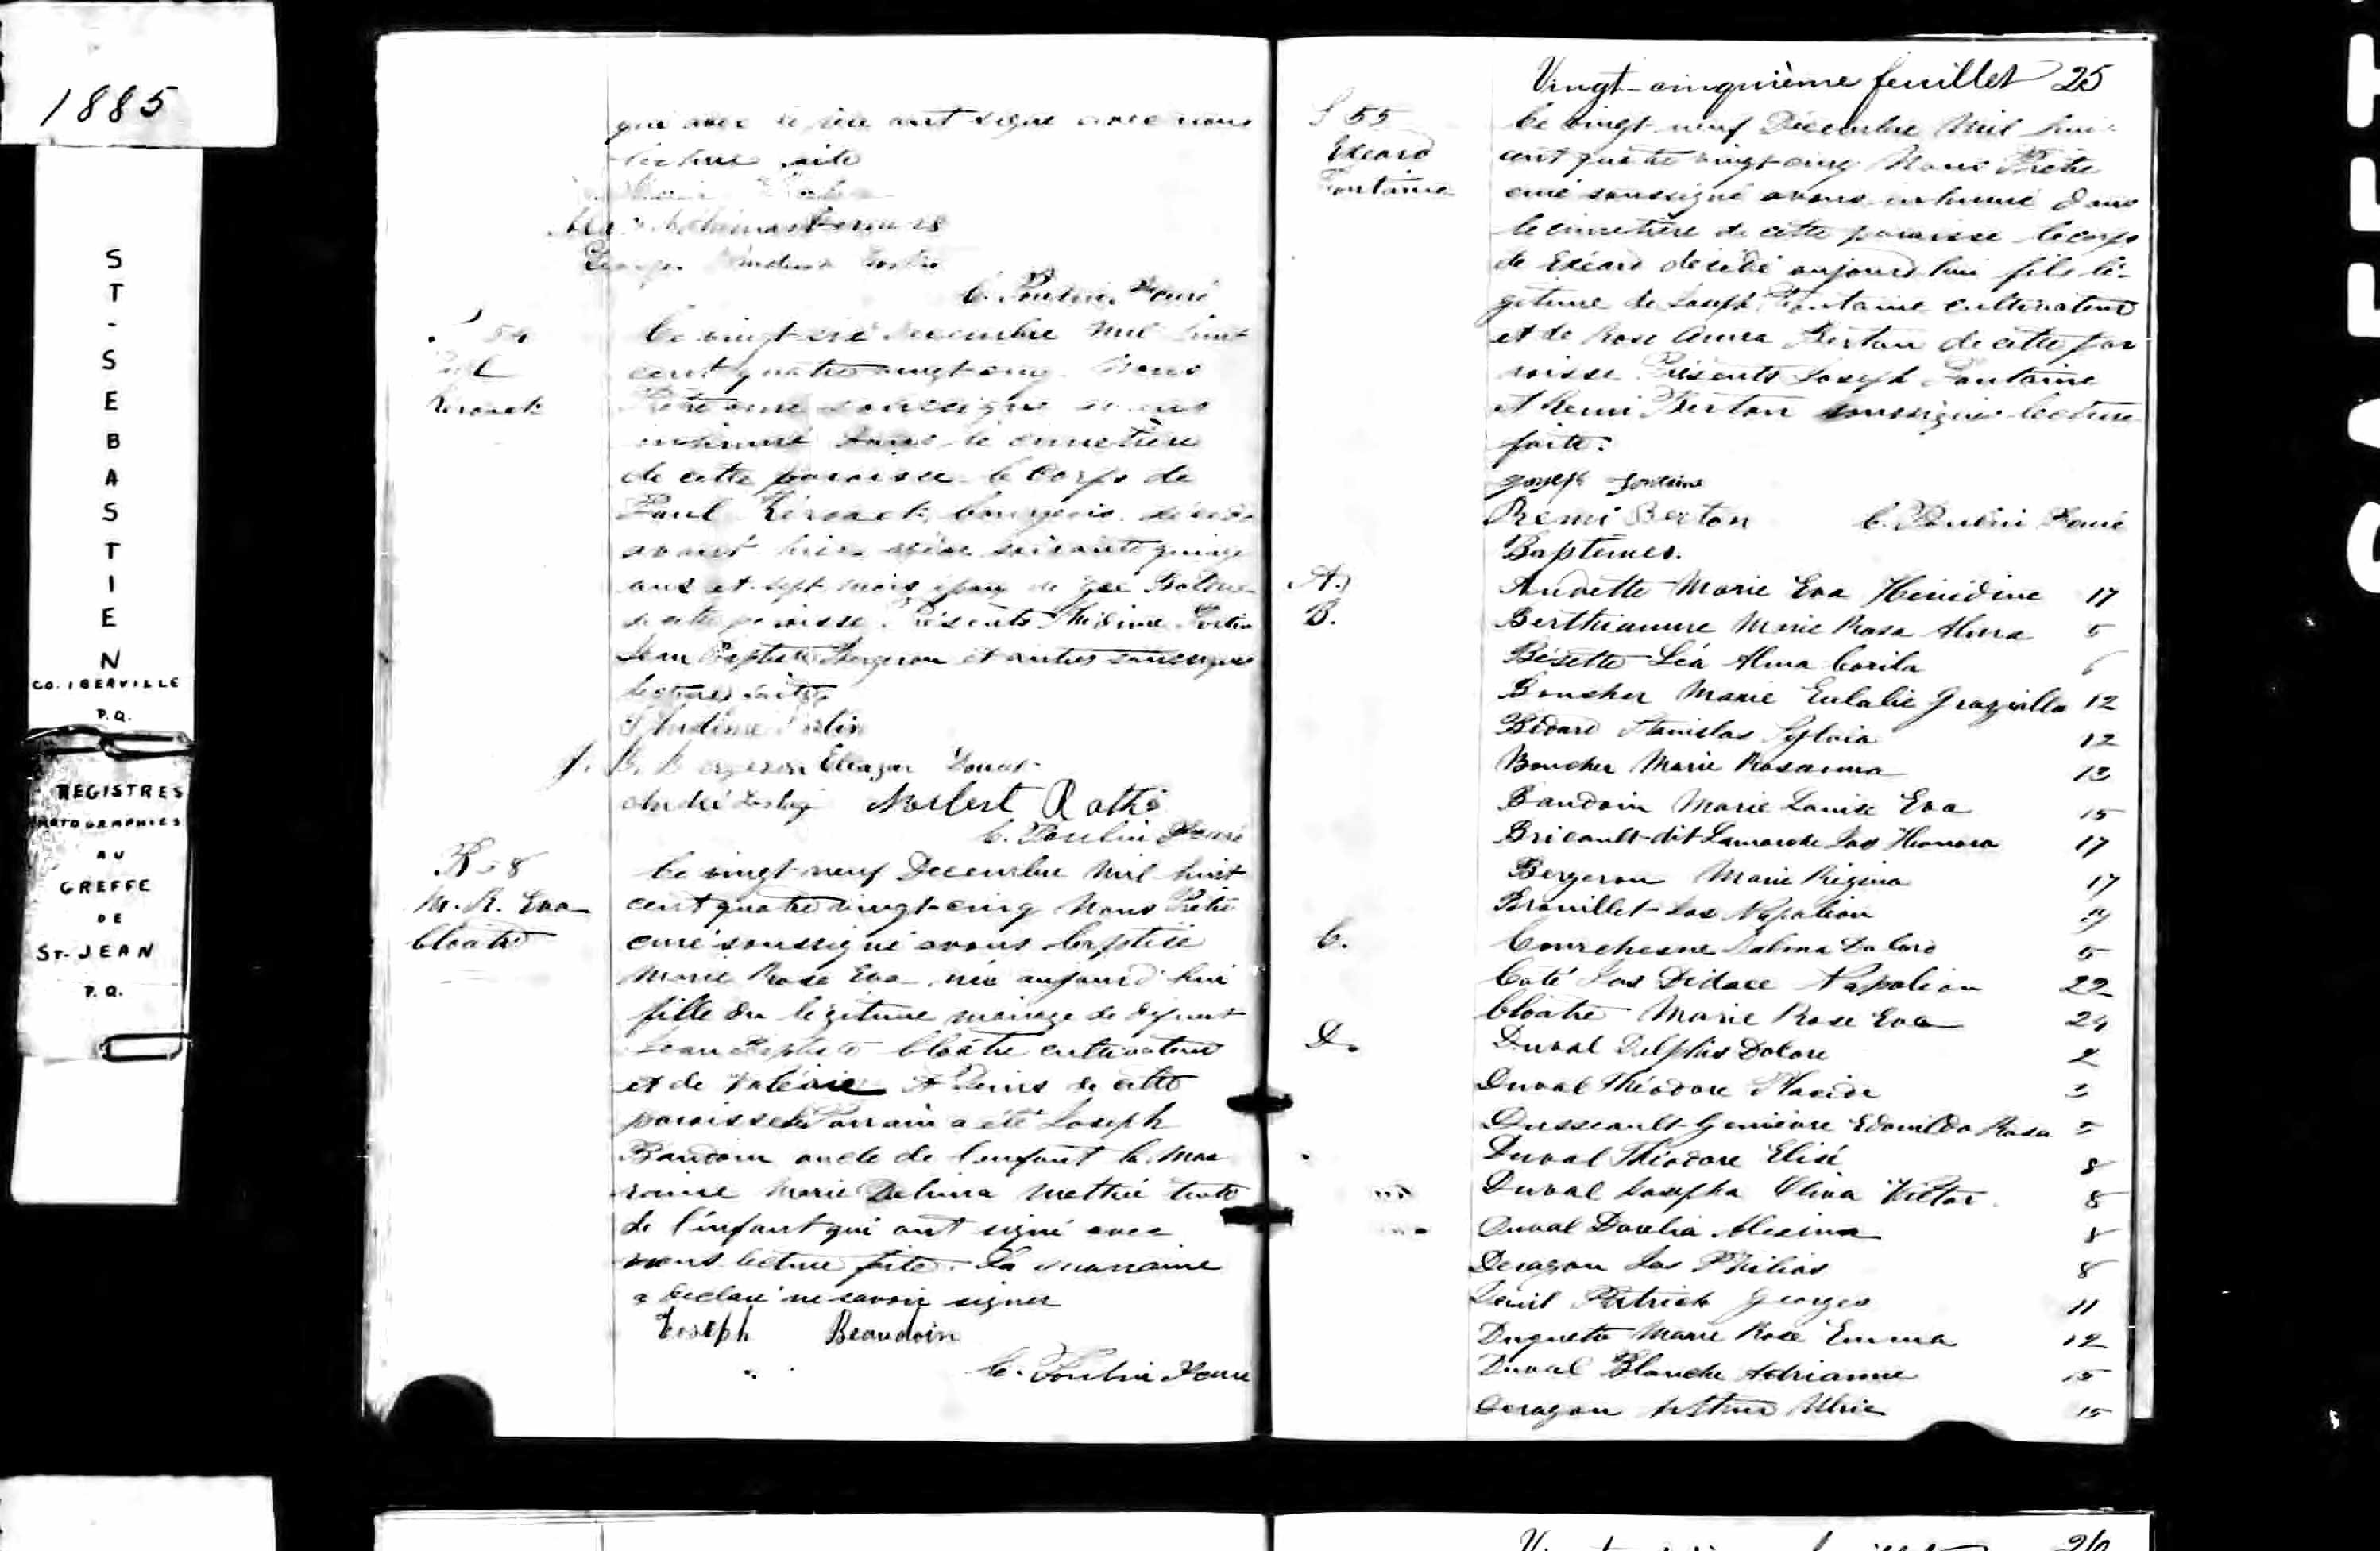 1885
ST-SEBASTIEN
CO. IBERVILLE
P.Q.
REGISTRES
PHOTOGRAPHIES
AU
GREFFE
DE
ST-JEAN
P.Q.
qui avec le père ont signé avec nous
lecture faite
C. Poulin Ptre curé
S 54
Paul
Kéroack
Ce vingt-six Decembre mil huit
cent quatre vingt-cinq Nous
Prêtre curé soussigné avons
inhumé dans le cimetière
de cette paroisse le corps de
Paul Kéroack, bourgeois, décédé
avant hier agé de soixante quinze
ans et sept mois époux de
de cette paroisse. Présents Fortin
Jean Baptiste Bergeron et autres soussignés
lecture faite
Fortin
J. B. Bergeron Eléazar Donat
André Norbert Rathé
C. Poulin Ptre curé
B 58
M. R. Eva
Cloâtre
Ce vingt-neuf Decembre mil huit
cent quatre vingt-cinq Nous Prêtre
curé soussigné avons baptisé
Marie Rose Eva née aujourd'hui
fille du légitime mariage de défunt
Jean Baptiste Cloâtre cultivateur
et de Valérie St Denis de cette
paroisse Le Parrain a été Joseph
Baudoin oncle de l'enfant la Mar
raine Marie Delima Methée tante
de l'enfant qui ont signé avec
nous lecture faite. La marraine
a déclaré ne savoir signer
Joseph Beaudoin
C. Poulin Ptre curé
Vingt-cinquième feuillet 25
S 55
Exéard
Fontaine
Ce vingt-neuf Décembre Mil huit
cent quatre vingt-cinq Nous Prêtre
curé soussigné avons inhumé dans
le cimetière de cette paroisse le corps
de Exéard décédé aujourd'hui fils lé-
gitime de Joseph Fontaine cultivateur
et de Rose Anna Berton de cette pa
roisse. Présents Joseph Fontaine
et Remi Berton soussignés lecture
faite.
Joseph Fontaine
Remi Berton C. Poulin Ptre curé
Baptêmes.
A. Audette Marie Eva Hénédine 17
B. Berthiaume Marie Rosa Alma 5
Bésette Léa Alma Corila 6
Boucher Marie Eulalie Graziella 12
Bédard Stanislas Sylvia 12
Boucher Marie Rosanna 13
Baudoin Marie Louise Eva 15
Bricault-dit-Lamarche Jos Honora 17
Bergeron Marie Régina 17
Brouillet Jos Napoléon
C. Courchesne 5
Coté Jos Didace Napoléon 22
Cloâtre Marie Rose Eva 24
D. Duval Delphis Dolore 2
Duval Théodore Placide 3
Dusseault Edouilda Rosa 5
Duval Théodore Elisé 8
Duval Josepha Olina Victor 8
Duval Dorelia Alexina 8
Deragon Jos Philias 8
Patrick Georges 11
Duquette Marie Rose Emma 12
Duval Blanche Adrianne 15
Deragon Arthur Ulric 15
26